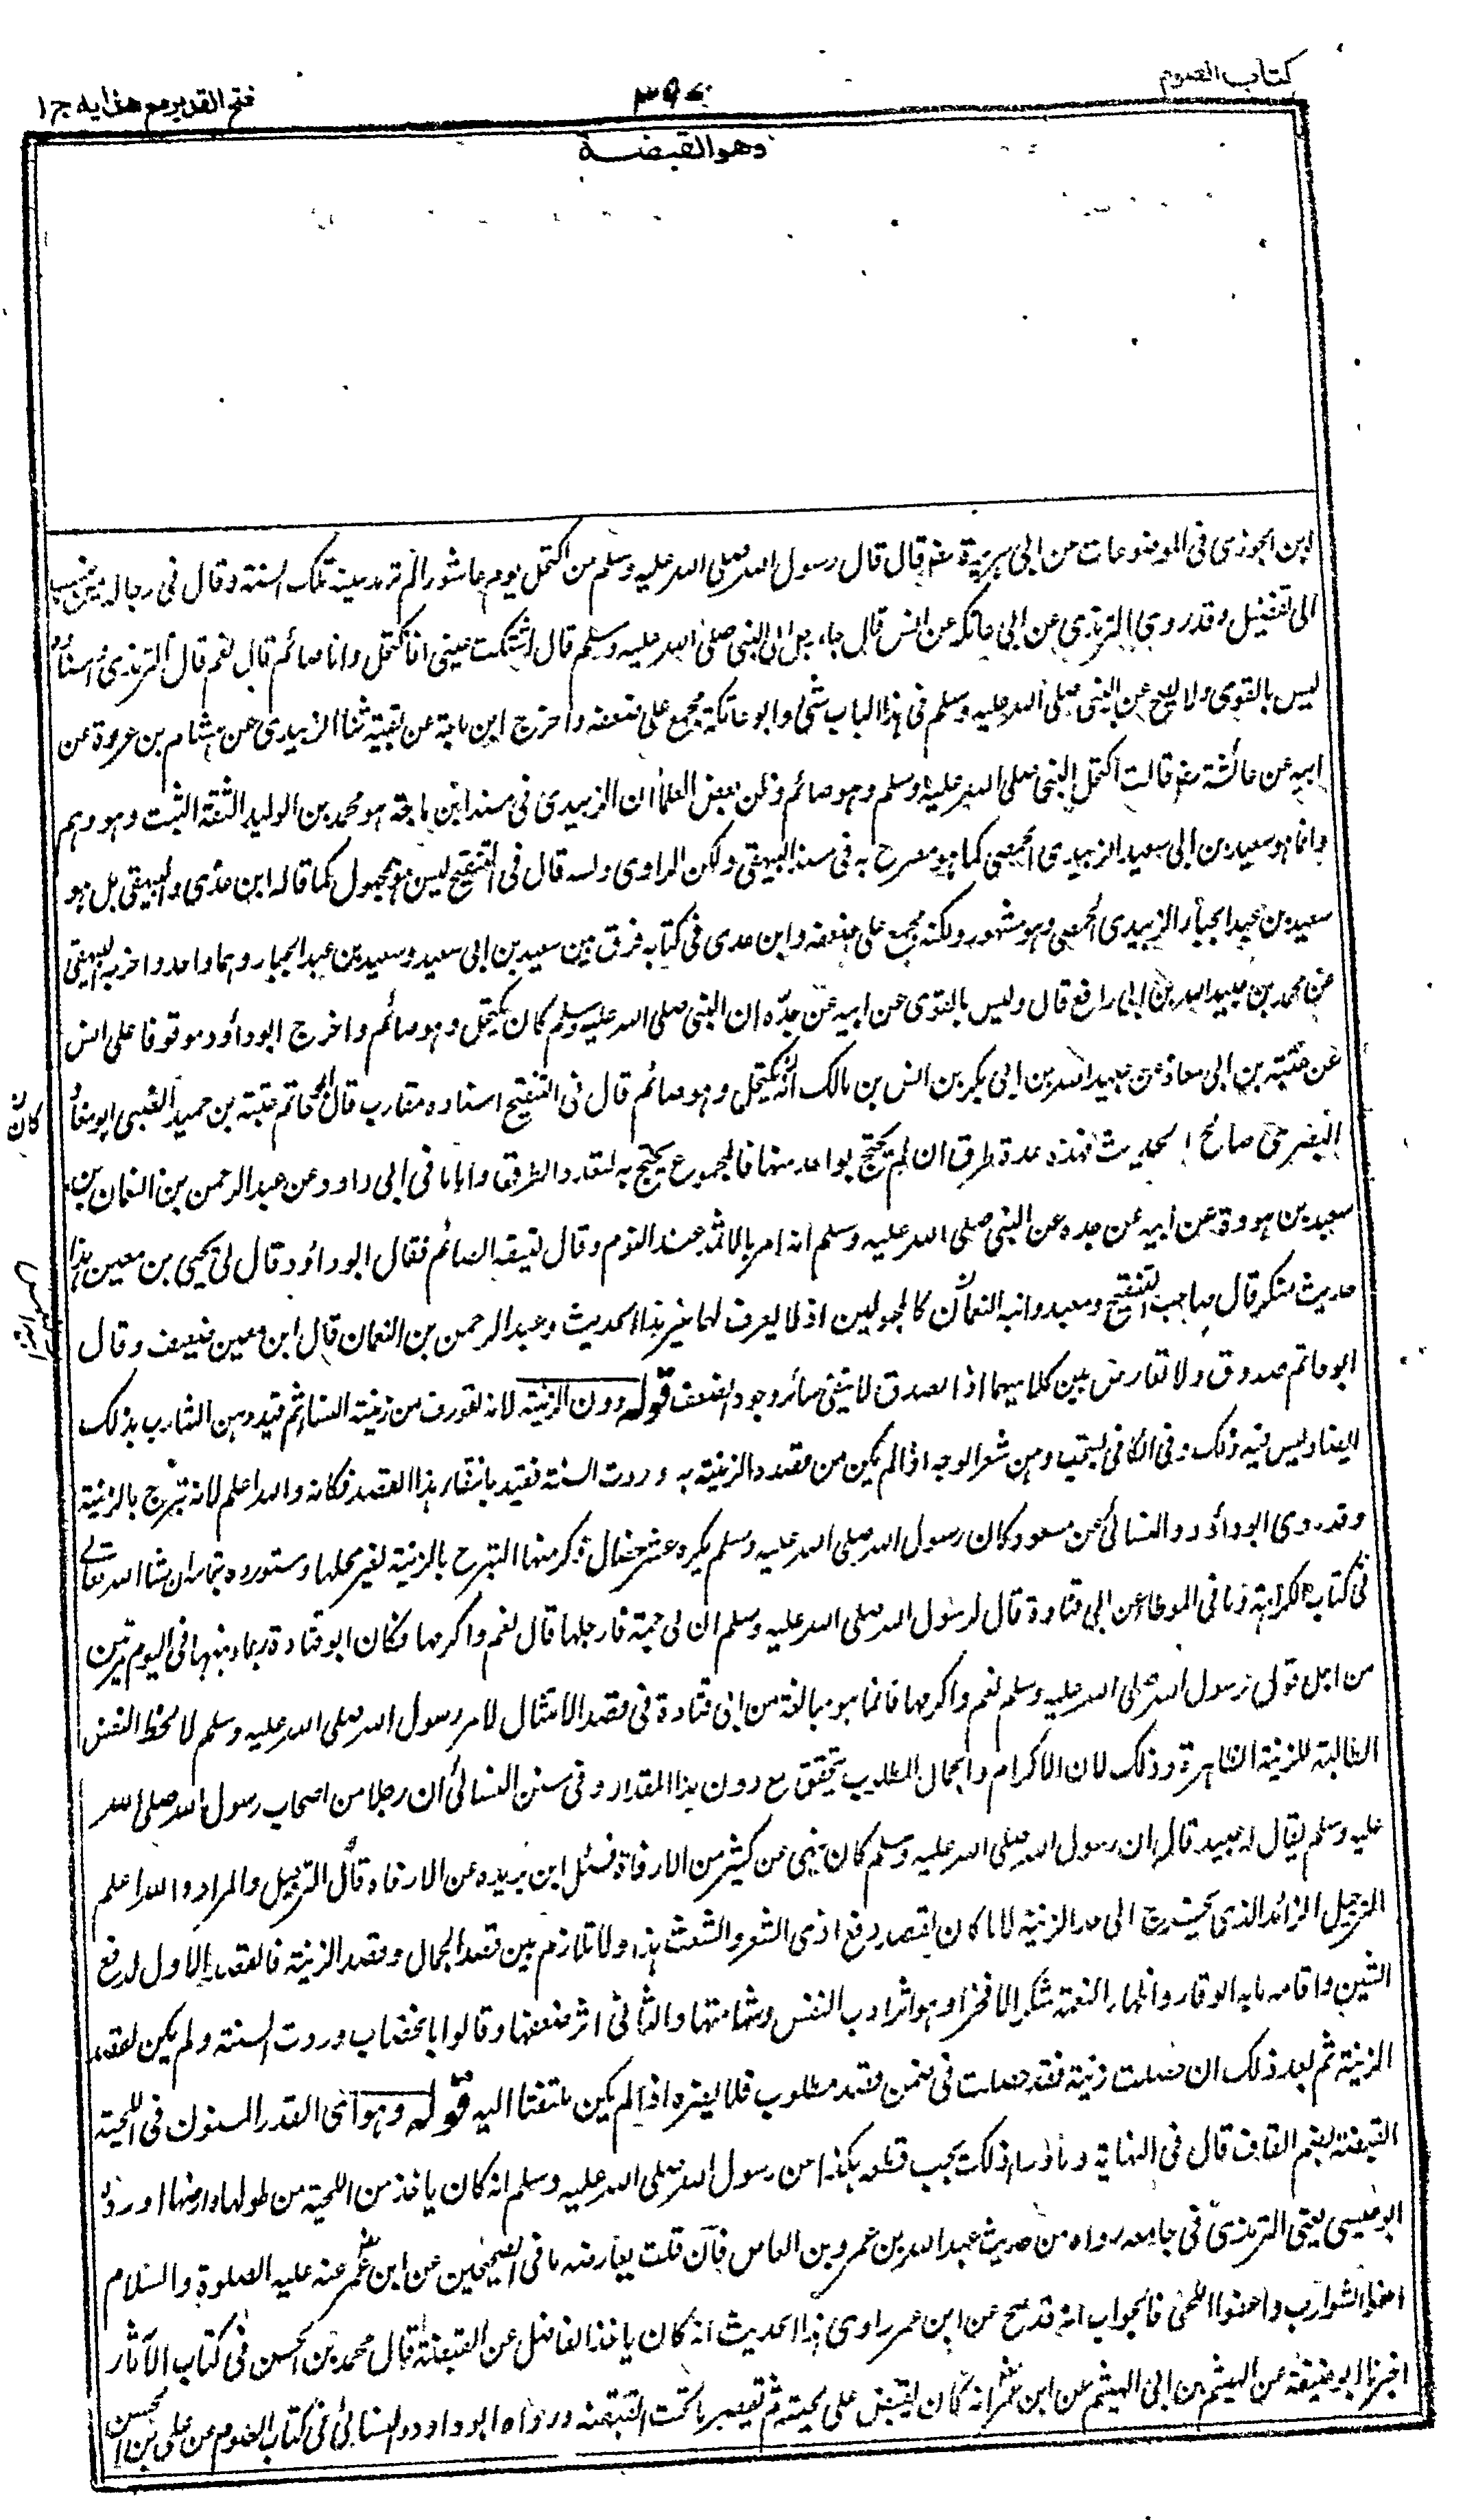 كتاب الصوم
٣٩٤
فتح القدير مع هدايه ج١
وهو القبضة
ابن الجوزى فى الموضوعات من ابى هريرة رضى قال قال رسول الله صلى الله عليه وسلم من اكتحل يوم عاشوراء لم ترمد عينه تلك السنة وقال فى رجاله من ينسب
الى تغفيل وقد روى الترمذى عن ابى عاتكه عن انس قال جاء رجل الى النبى صلى الله عليه وسلم قال اشتكت عينى افاكتحل وانا صائم قال نعم قال الترمذى اسناده
ليس بالقوى ولا يصح عن النبى صلى الله عليه وسلم فى هذا الباب شئ وابو عاتكة مجمع على ضعفه واخرج ابن ماجة عن بقية ثنا الزبيدى عن هشام بن عروة عن
ابيه عن عائشة رضى قالت اكتحل النبى صلى الله عليه وسلم وهو صائم وظن بعض العلماء ان الزبيدى فى سند ابن ماجة هو محمد بن الوليد الثقة الثبت وهو وهم
وانما هو سعيد بن ابى سعيد الزبيدى الحمصى كما هو مصرح به فى سند البيهقى ولكن الراوى دلسه قال فى التنقيح ليس هو بمجهول كما قاله ابن عدى والبيهقى بل هو
سعيد بن عبد الجبار الزبيدى الحمصى وهو مشهور ولكنه مجمع على ضعفه وابن عدى فى كتابه فرق بين سعيد بن ابى سعيد وسعيد بن عبد الجبار وهما واحد واخرج البيهقى
عن محمد بن عبيد الله بن ابى رافع قال وليس بالقوى عن ابيه عن جده ان النبى صلى الله عليه وسلم كان يكتحل وهو صائم واخرج ابو داود موقوفا على انس
عن عتبة بن ابى معاذ عن عبيد الله بن ابى بكر بن انس بن مالك انه يكتحل وهو صائم قال فى التنقيح اسناده مقارب قال ابو حاتم عتبة بن حميد الضبى ابو معاذ
كان
البصرى صالح الحديث فهذه عدة طرق ان لم يحتج بواحد منها فالمجموع يحتج به لتعدد الطرق واما ما فى ابى داود عن عبد الرحمن بن النعمان بن
سعيد بن هودة عن ابيه عن جده عن النبى صلى الله عليه وسلم انه امر بالاثمد عند النوم وقال ليتقه الصائم فقال ابو داود قال لى يحيى بن معين هذا
حديث منكر قال صاحب التنقيح ومعبد وابنه النعمان كالمجهولين اذ لا يعرف لهما غير هذا الحديث وعبد الرحمن بن النعمان قال ابن معين ضعيف وقال
ابو حاتم صدوق ولا تعارض بين كلاميهما اذ الصدق لا ينفى سائر وجوه الضعف قوله دون الزينة لانه تعورف من زينة النساء ثم قيد دهن الشارب بذلك
ايضا وليس فيه ذلك وفى الكافى يستحب دهن شعر الوجه اذا لم يكن من قصده الزينة به وردت السنة فقيد بانتفاء هذا القصد فكانه والله اعلم لانه تبرج بالزينة
وقد روى ابو داود والنسائى عن مسعود كان رسول الله صلى الله عليه وسلم يكره عشر خصال ذكر منها التبرج بالزينة لغير محلها وسنورده بتمامه ان شاء الله تعالى
فى كتاب الكراهة وما فى الموطا عن ابى قتادة قال لرسول الله صلى الله عليه وسلم ان لى جمة فارجلها قال نعم واكرمها فكان ابو قتادة ربما دهنها فى اليوم مرتين
من اجل قول رسول الله صلى الله عليه وسلم نعم واكرمها فانما هو مبالغة من ابى قتادة فى قصد الامتثال لامر رسول الله صلى الله عليه وسلم لا لحظ النفس
الطالبة للزينة الظاهرة وذلك لان الاكرام والجمال المطلوب يتحقق مع دون هذا المقدار وفى سنن النسائى ان رجلا من اصحاب رسول الله صلى الله
عليه وسلم يقال له عبيد قال ان رسول الله صلى الله عليه وسلم كان ينهى عن كثير من الارفاه فسئل ابن بريده عن الارفاه قال الترجيل والمراد والله اعلم
الترجيل الزائد الذى يخرج الى حد الزينة لا ما كان لقصد دفع اذى الشعر والشعث هذا ولا تلازم بين قصد الجمال وقصد الزينة فالقصد الاول لدفع
الشين واقامه ما به الوقار واظهار النعمة شكرا لا فخرا وهو اثر ادب النفس وشهامتها والثانى اثر ضعفها وقالوا بالخضاب وردت السنة ولم يكن لقصد
الزينة ثم بعد ذلك ان حصلت زينة فقد حصلت فى ضمن قصد مطلوب فلا يضره اذا لم يكن ملتفتا اليه قوله وهو اى القدر المسنون فى اللحية
القبضة بضم القاف قال فى النهاية وما وراء ذلك يجب قطعه هكذا عن رسول الله صلى الله عليه وسلم انه كان ياخذ من اللحية من طولها وعرضها اورده
ابو عيسى يعنى الترمذى فى جامعه رواه من حديث عبد الله بن عمرو بن العاص فان قلت يعارضه ما فى الصحيحين عن ابن عمر رضى عنه عليه الصلوة والسلام
احفوا الشوارب واعفوا اللحى فالجواب انه قد صح عن ابن عمر راوى هذا الحديث انه كان ياخذ الفاضل عن القبضة قال محمد بن الحسن فى كتاب الآثار
اخبرنا ابو حنيفة عن الهيثم بن ابى الهيثم عن ابن عمر رضى انه كان يقبض على لحيته ثم يقص ما تحت القبضة ورواه ابو داود والنسائى فى كتاب الصوم من على بن الحسن